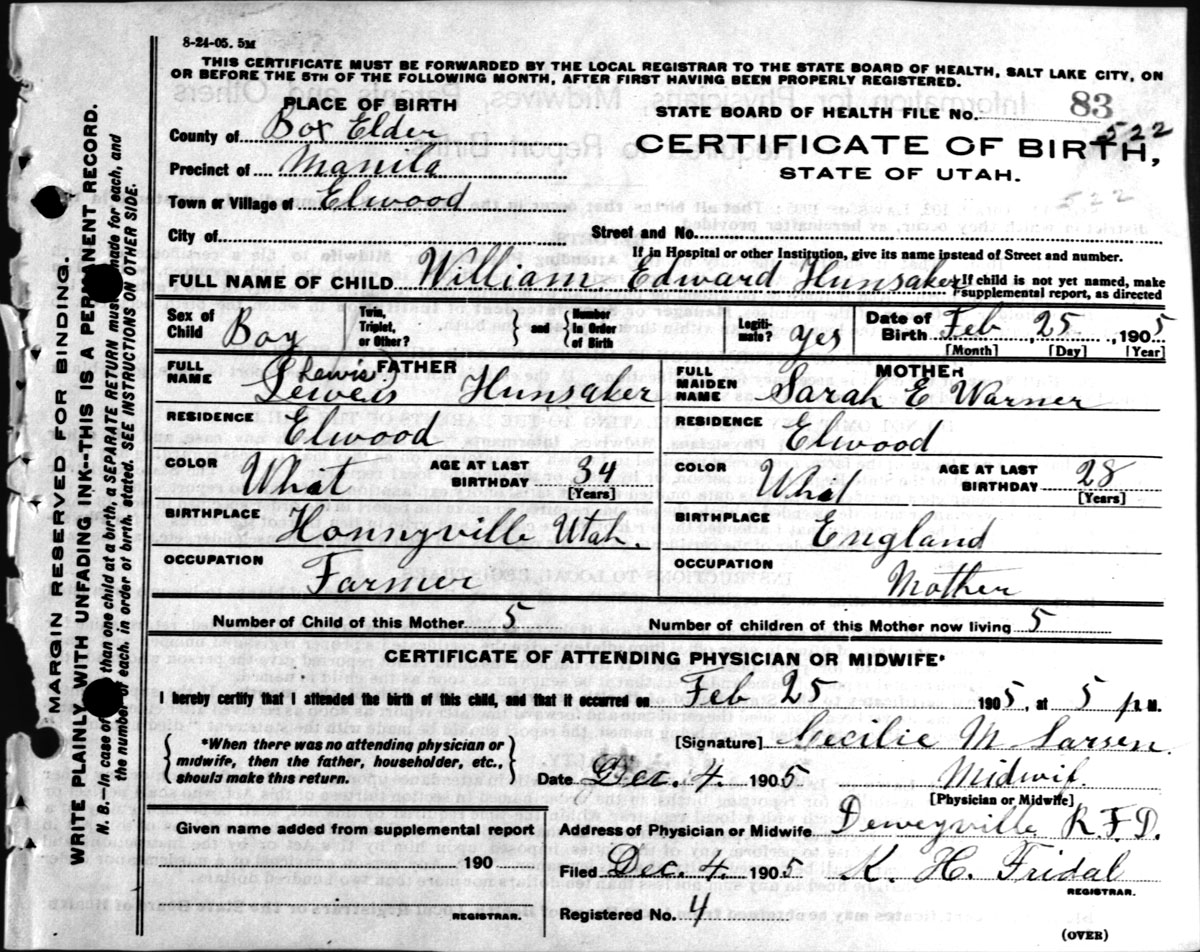 8-24-05. 5M
THIS CERTIFICATE MUST BE FORWARDED BY THE LOCAL REGISTRAR TO THE STATE BOARD OF HEALTH, SALT LAKE CITY, ON
OR BEFORE THE 5TH OF THE FOLLOWING MONTH, AFTER FIRST HAVING BEEN PROPERLY REGISTERED.
PLACE OF BIRTH
STATE BOARD OF HEALTH FILE No. 83
522
County of Box Elder
CERTIFICATE OF BIRTH,
Precinct of Manila
STATE OF UTAH.
522
Town or Village of Elwood
City of Street and No.
If in Hospital or other Institution, give its name instead of Street and number.
FULL NAME OF CHILD William Edward Hunsaker
If child is not yet named, make
supplemental report, as directed
Sex of Child Boy Twin, Triplet, or Other? and Number In Order of Birth Legiti-mate? Yes Date of Birth Feb 25, 1905
[Month] [Day] [Year]
FATHER MOTHER
FULL NAME Leweis Lewis Hunsaker FULL MAIDEN NAME Sarah E Warner
RESIDENCE Elwood RESIDENCE Elwood
COLOR What AGE AT LAST BIRTHDAY 34 [Years] COLOR What AGE AT LAST BIRTHDAY 28 [Years]
BIRTHPLACE Honnyville Utah. BIRTHPLACE England
OCCUPATION Farmer OCCUPATION Mother
Number of Child of this Mother 5 Number of children of this Mother now living 5
CERTIFICATE OF ATTENDING PHYSICIAN OR MIDWIFE*
I hereby certify that I attended the birth of this child, and that it occurred on Feb 25 1905, at 5 P.M.
*When there was no attending physician or
midwife, then the father, householder, etc.,
should make this return.
[Signature] Cecilie M Larsen.
Date Dec. 4. 1905 Midwif.
[Physician or Midwife]
Given name added from supplemental report
190
REGISTRAR.
Address of Physician or Midwife Deweyville R.F.D.
Filed Dec. 4. 1905 K. H. Fridal
REGISTRAR.
Registered No. 4
(OVER)
MARGIN RESERVED FOR BINDING.
WRITE PLAINLY WITH UNFADING INK--THIS IS A PERMANENT RECORD.
N. B.—In case of than one child at a birth, a SEPARATE RETURN mus made for each, and
the number of each, in order of birth, stated. SEE INSTRUCTIONS ON OTHER SIDE.